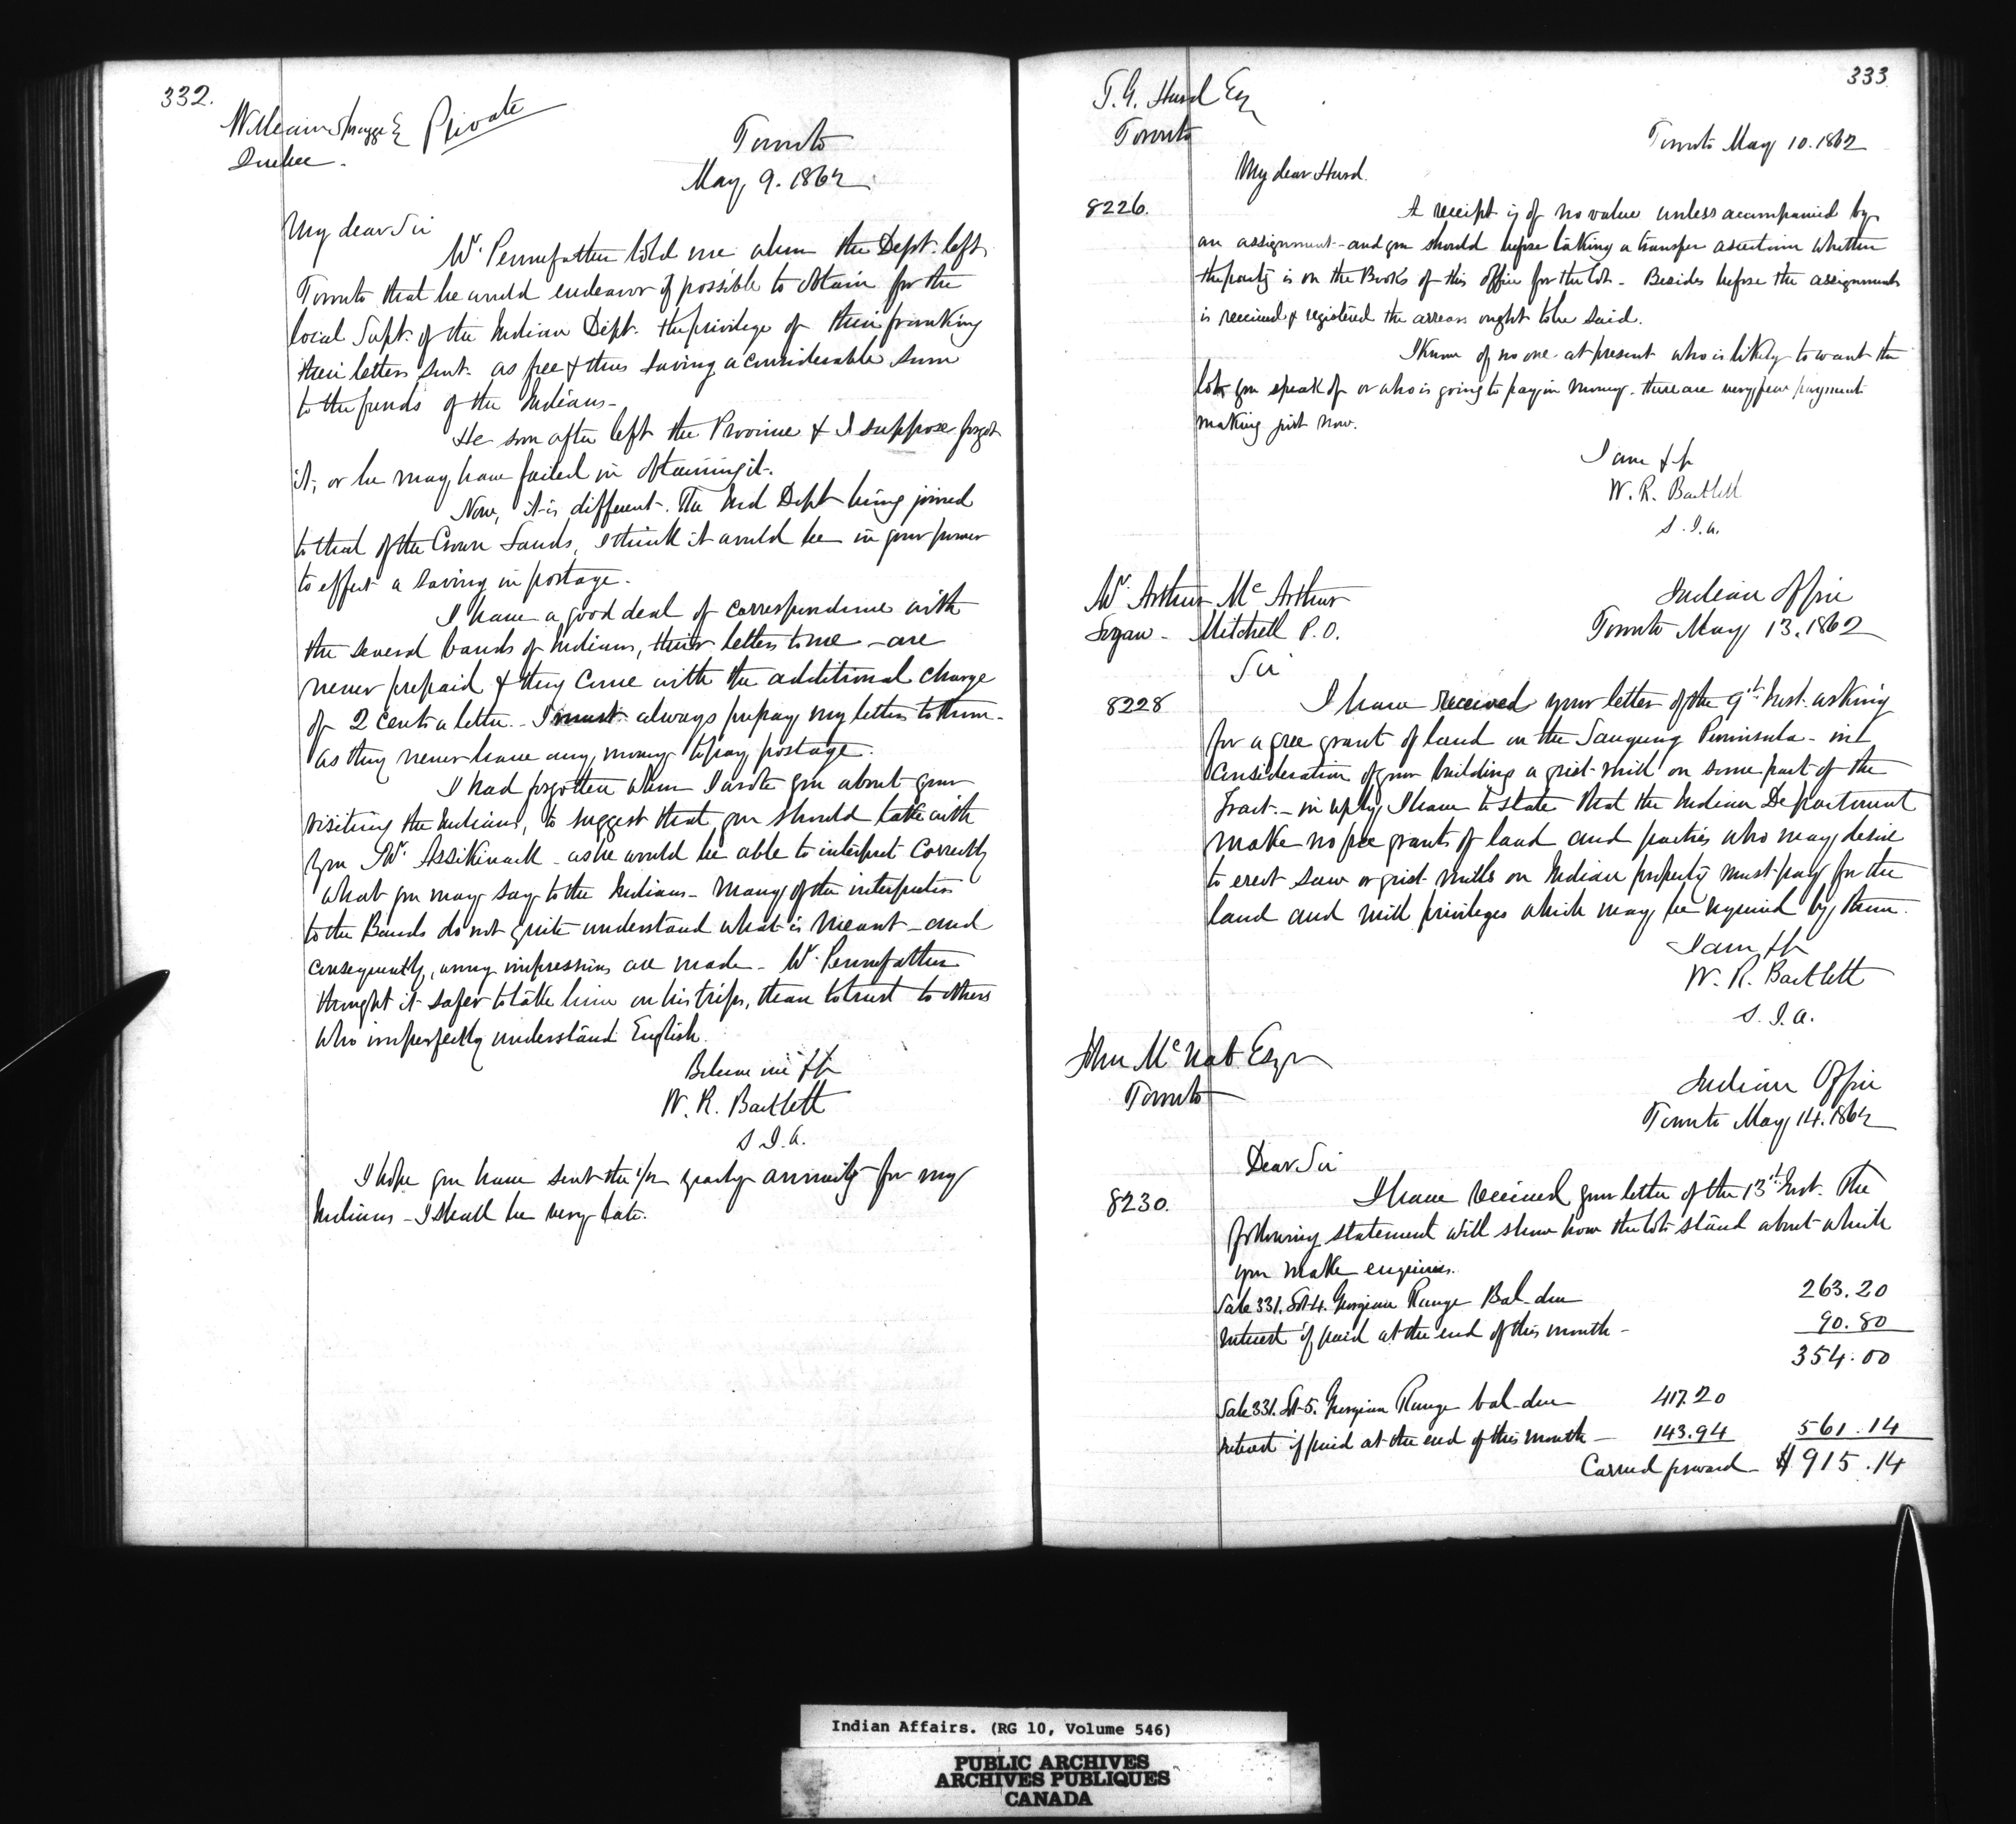 332.
William Spragge Esq Private
Quebec.
Toronto
May 9. 1862
My dear Sir
Mr. Pennefather told me when the Dept. left
Toronto that he would endeavor if possible to obtain for the
local Supt. of the Indian Dept. the privilege of their franking
their letters sent as free & thus saving a considerable sum
to the funds of the Indians -
He soon after left the Province & I suppose forgot
it, or he may have failed in obtaining it.
Now, it is different. The Ind Dept being joined
to that of the Crown Lands, I think it would be in your power
to effect a saving in postage.
I have a good deal of correspondence with
the several bands of Indians, their letters to me - are
never prepaid & they come with the additional charge
of 2 Cents a letter. - I must always prepay my letters to them -
as they never have any money to pay postage.
I had forgotten when I wrote you about your
visiting the Indians, to suggest that you should take with
you Mr. Assikinack - as he would be able to interpret correctly
what you may say to the Indians - many of the interpreters
to the Bands do not quite understand what is meant - and
consequently, wrong impressions are made - Mr. Pennefather
thought it safer to take him on his trips, than to trust to others
who imperfectly understand English.
Believe me &c
W. R. Bartlett
S. I. A.
I hope you have sent the 1/2 yearly annuity for my
Indians - I shall be very late.
333
T. G. Hurd Esq
Toronto
Toronto May 10. 1862
My dear Hurd.
8226.
A receipt is of no value unless acompanied by
an assignment - and you should before taking a transfer ascertain whether
the party is on the Books of this office for the lot - Besides before the assignment
is received & registered the arrears ought to be paid.
I know of no one at present who is likely to want the
lots you speak of or who is going to pay in money. there are very few payments
making just now.
I am &c
W. R. Bartlett
S. I. A.
Mr. Arthur McArthur
Logan - Mitchell P.O.
Indian Office
Toronto May 13. 1862
Sir
8228
I have received your letter of the 9th Inst. asking
for a free grant of land in the Saugeen Peninsula - in
consideration of your building a grist mill on some part of the
Tract. - in reply, I have to state that the Indian Department
make no free grants of land and parties who may desire
to erect saw or grist mills on Indian property must pay for the
land and mill privileges which may be required by them.
I am &c
W. R. Bartlett
S. I. A.
John McNab Esqr
Toronto
Indian Office
Toronto May 14. 1862
Dear Sir
8230.
I have received your letter of the 13th Inst. The
following statement will show how the lots stand about which
you make enquiries.
Sale 331. Lot 4. Georgian Range Bal due 263.20
Interest if paid at the end of this month - 90.80
354.00
Sale 331. Lot 5. Georgian Range bal due 417.20
Interest if paid at the end of this month - 143.94 561.14
Carried forward $915.14
Indian Affairs. (RG 10, Volume 546)
PUBLIC ARCHIVES
ARCHIVES PUBLIQUES
CANADA